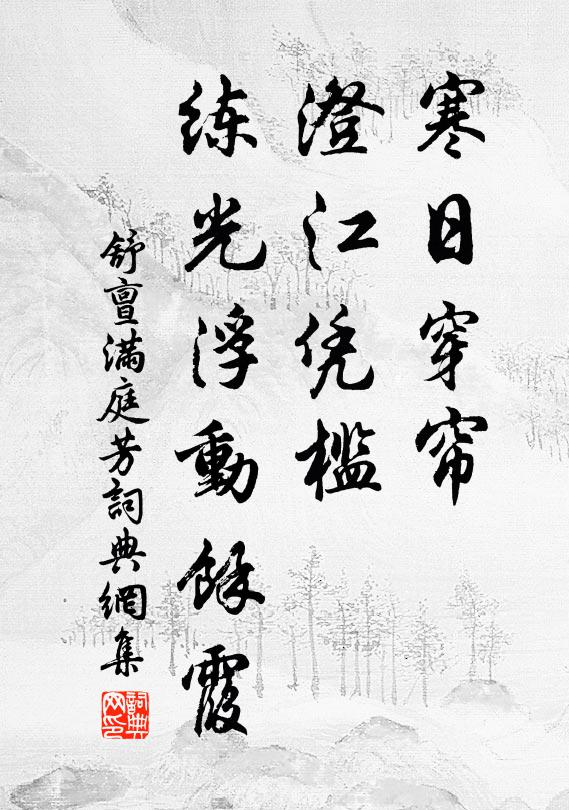 寒日穿帘
澄江凭槛
练光浮動餘霞
舒亶满庭芳詞典網集
詞典网印